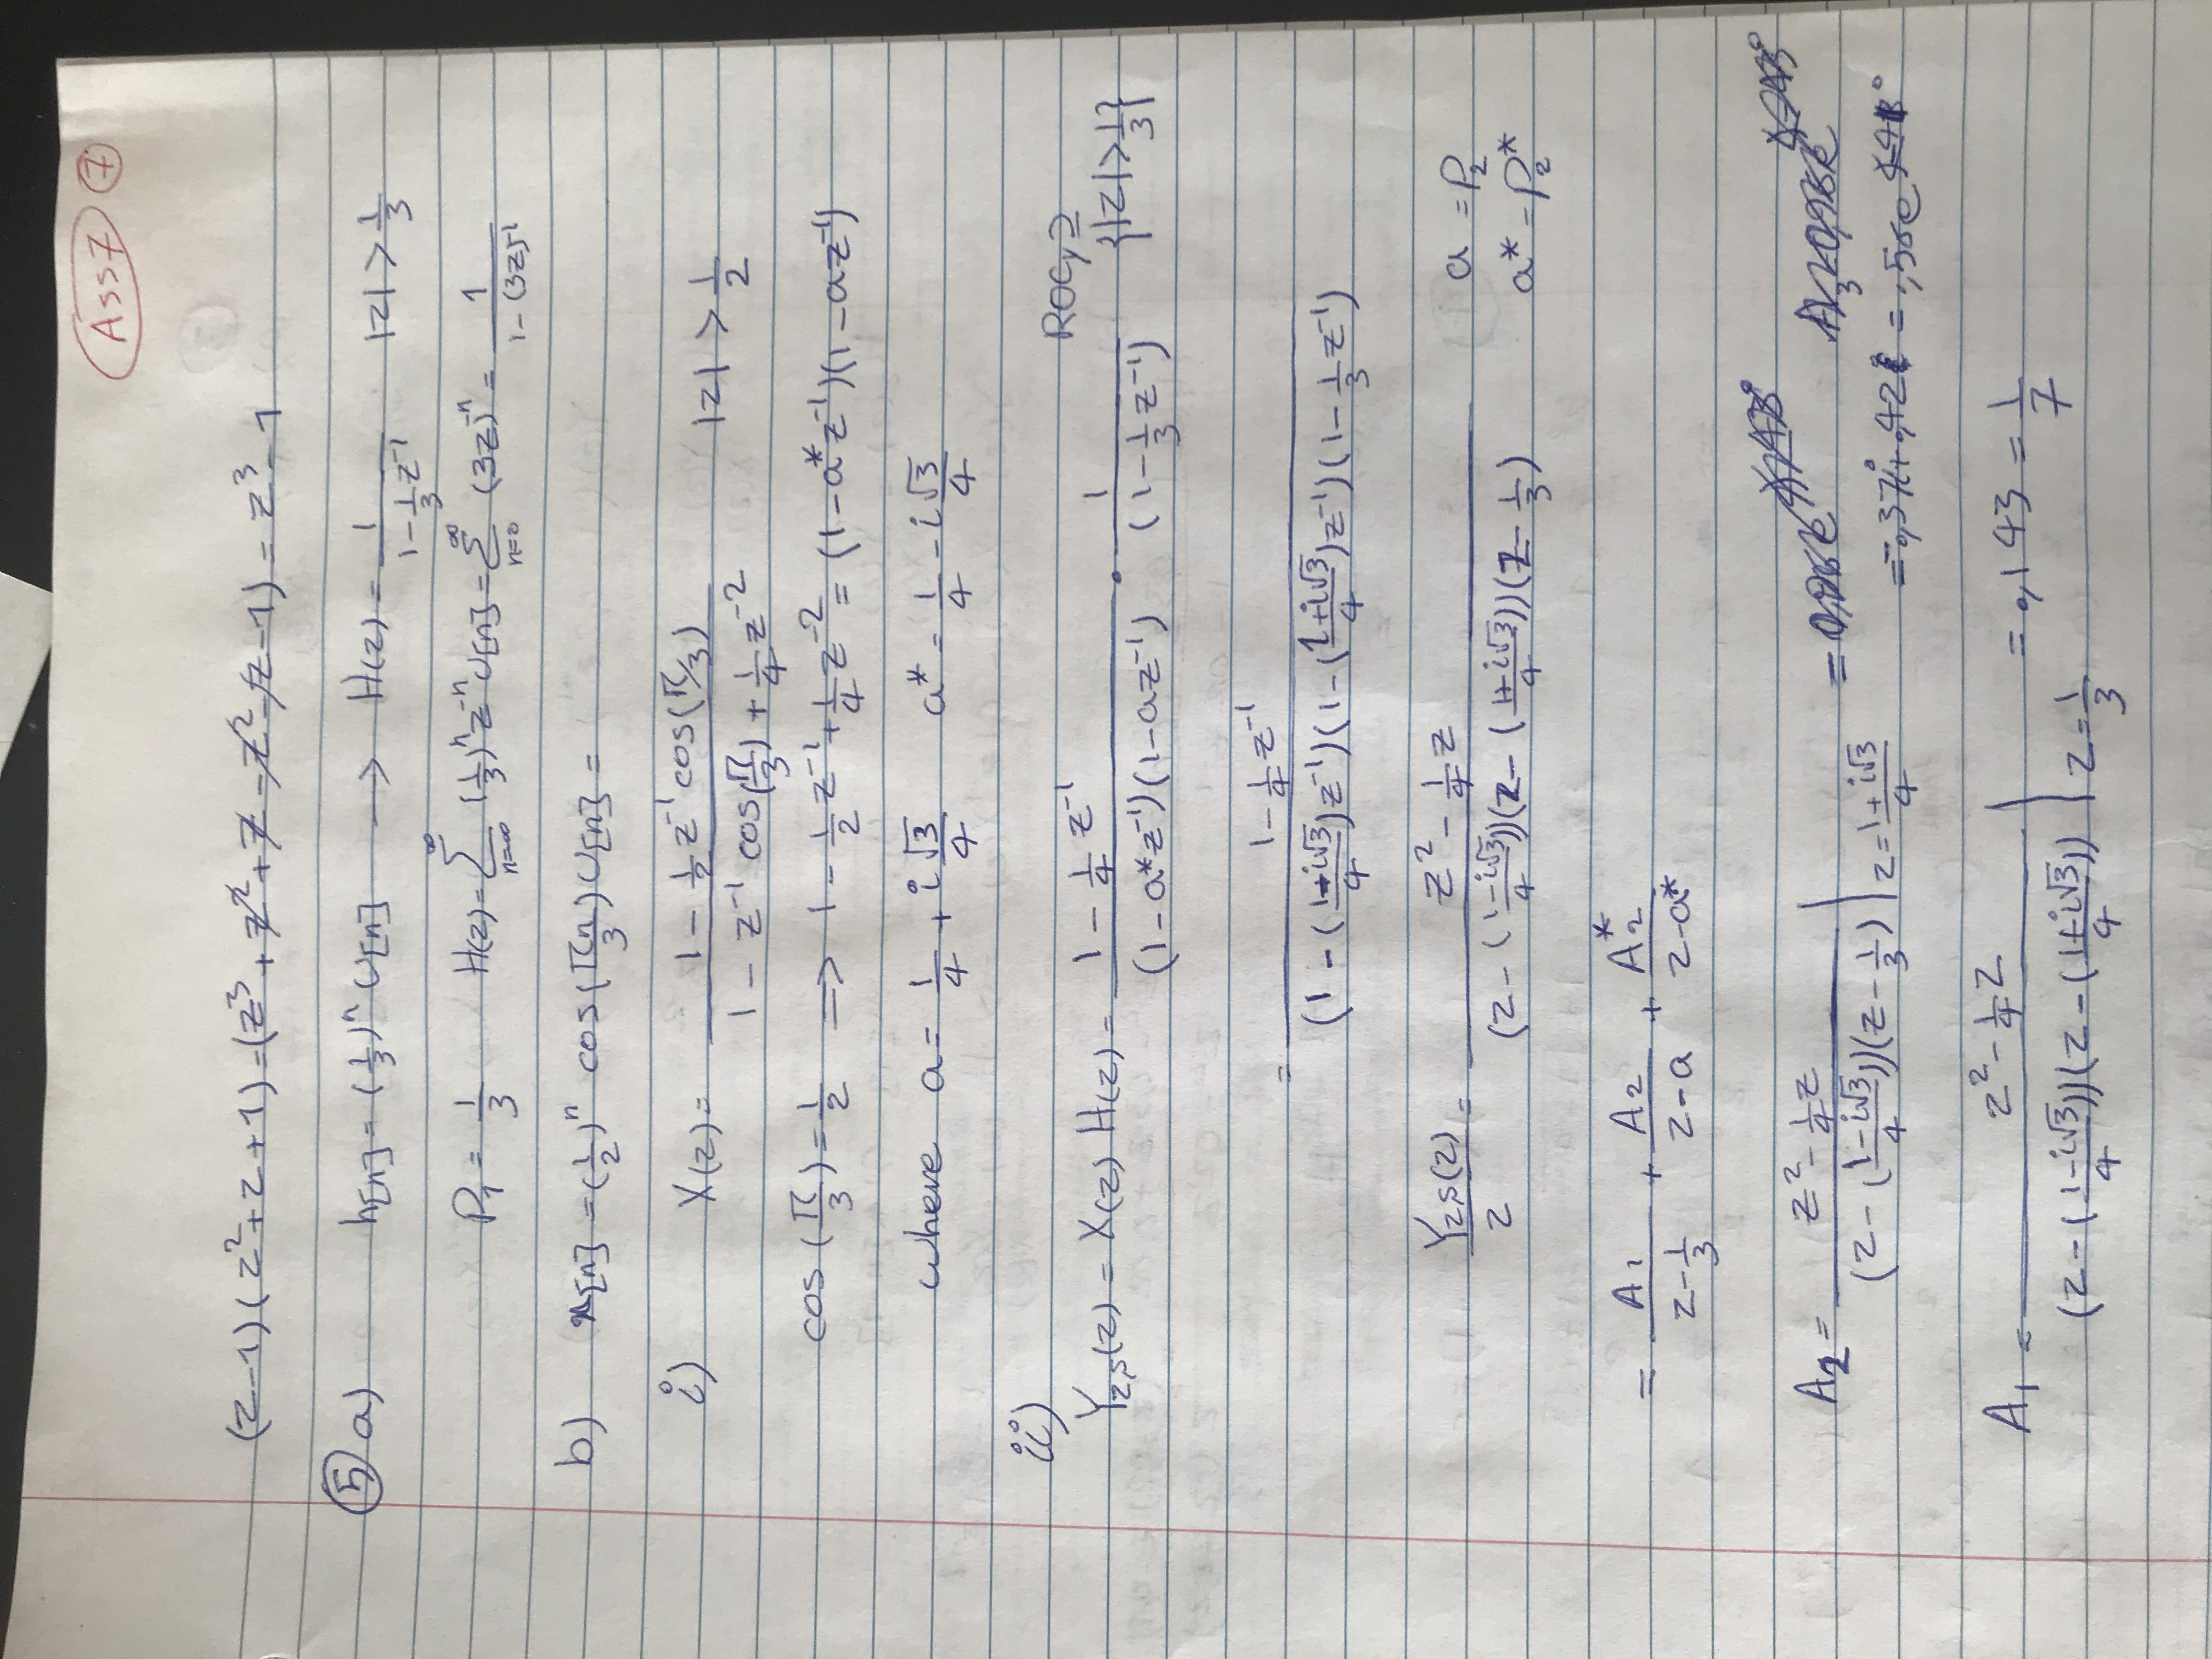 Ass7 ⑦
(z-1)(z²+z+1)=(z³+z²+z-z²-z-1)=z³-1
⑤ a) h[n]=(1/3)ⁿ U[n] → H(z)=1/(1-1/3 z⁻¹) |z|>1/3
P₁=1/3 H(z)=∑_{n=∞}^{∞} (1/3)ⁿ z⁻ⁿ U[n]=∑_{n=0}^{∞} (3z)⁻ⁿ=1/(1-(3z)⁻¹)
b) x[n]=(1/2)ⁿ cos(πn/3)U[n]=
i) X(z)=(1-1/2 z⁻¹cos(π/3))/(1-z⁻¹cos(π/3)+1/4 z⁻²) |z|>1/2
cos(π/3)=1/2 ⇒ 1-1/2 z⁻¹+1/4 z⁻²=(1-a*z⁻¹)(1-az⁻¹)
where a=1/4+i√3/4 a*=1/4-i√3/4
ii)
Y_{z,s}(z)=X(z)H(z)=(1-1/4 z⁻¹)/((1-a*z⁻¹)(1-az⁻¹))·1/(1-1/3 z⁻¹) ROC_Y⊇{|z|>1/3}
=(1-1/4 z⁻¹)/((1-((1+i√3)/4)z⁻¹)(1-((1+i√3)/4)z⁻¹)(1-1/3 z⁻¹))
Y_{z,s}(z)/z=(z²-1/4 z)/((z-((1-i√3)/4))(z-((1+i√3)/4))(z-1/3)) a=P₂
a*=P₂*
=A₁/(z-1/3)+A₂/(z-a)+A₂*/(z-a*)
A₂=(z²-1/4 z)/((z-((1-i√3)/4))(z-1/3))|z=(1+i√3)/4
A₁=(z²-1/4 z)/((z-((1-i√3)/4))(z-((1+i√3)/4)))|z=1/3 =.143=1/7